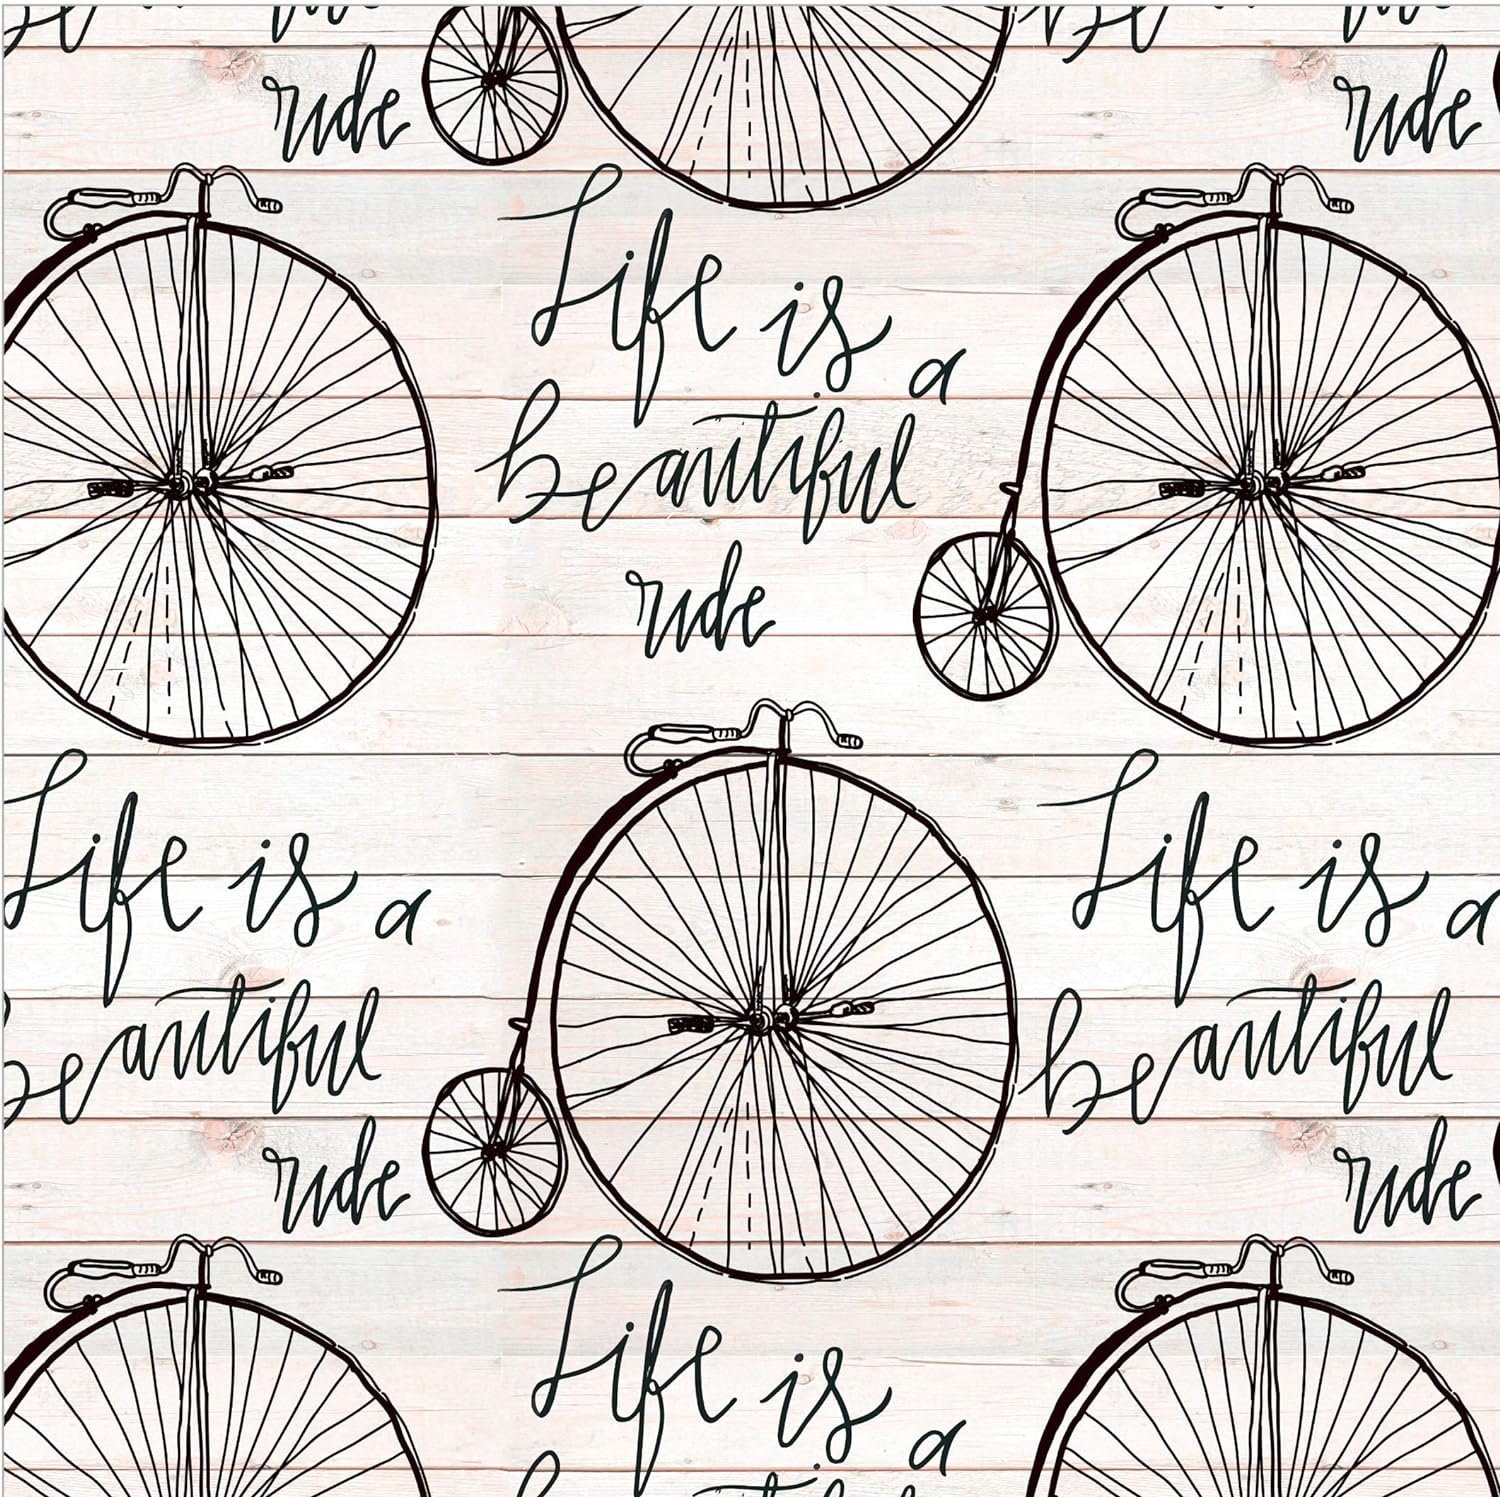 ride
ride
Life is a
beautiful
ride
Life is a
beautiful
ride
Life is a
beautiful
ride
Life is a